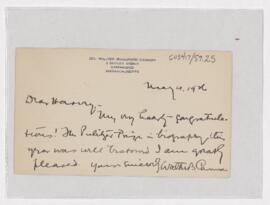 DR. WALTER BRADFORD CANNON
2 DIVINITY AVENUE
CAMBRIDGE
MASSACHUSETTS
May 4, 19
Dear Harvey -
My very hearty congratula-
tions! The Pulitzer Prize in biography this
year was well bestowed. I am greatly
pleased. Yours sincerely, Walter B. Cannon